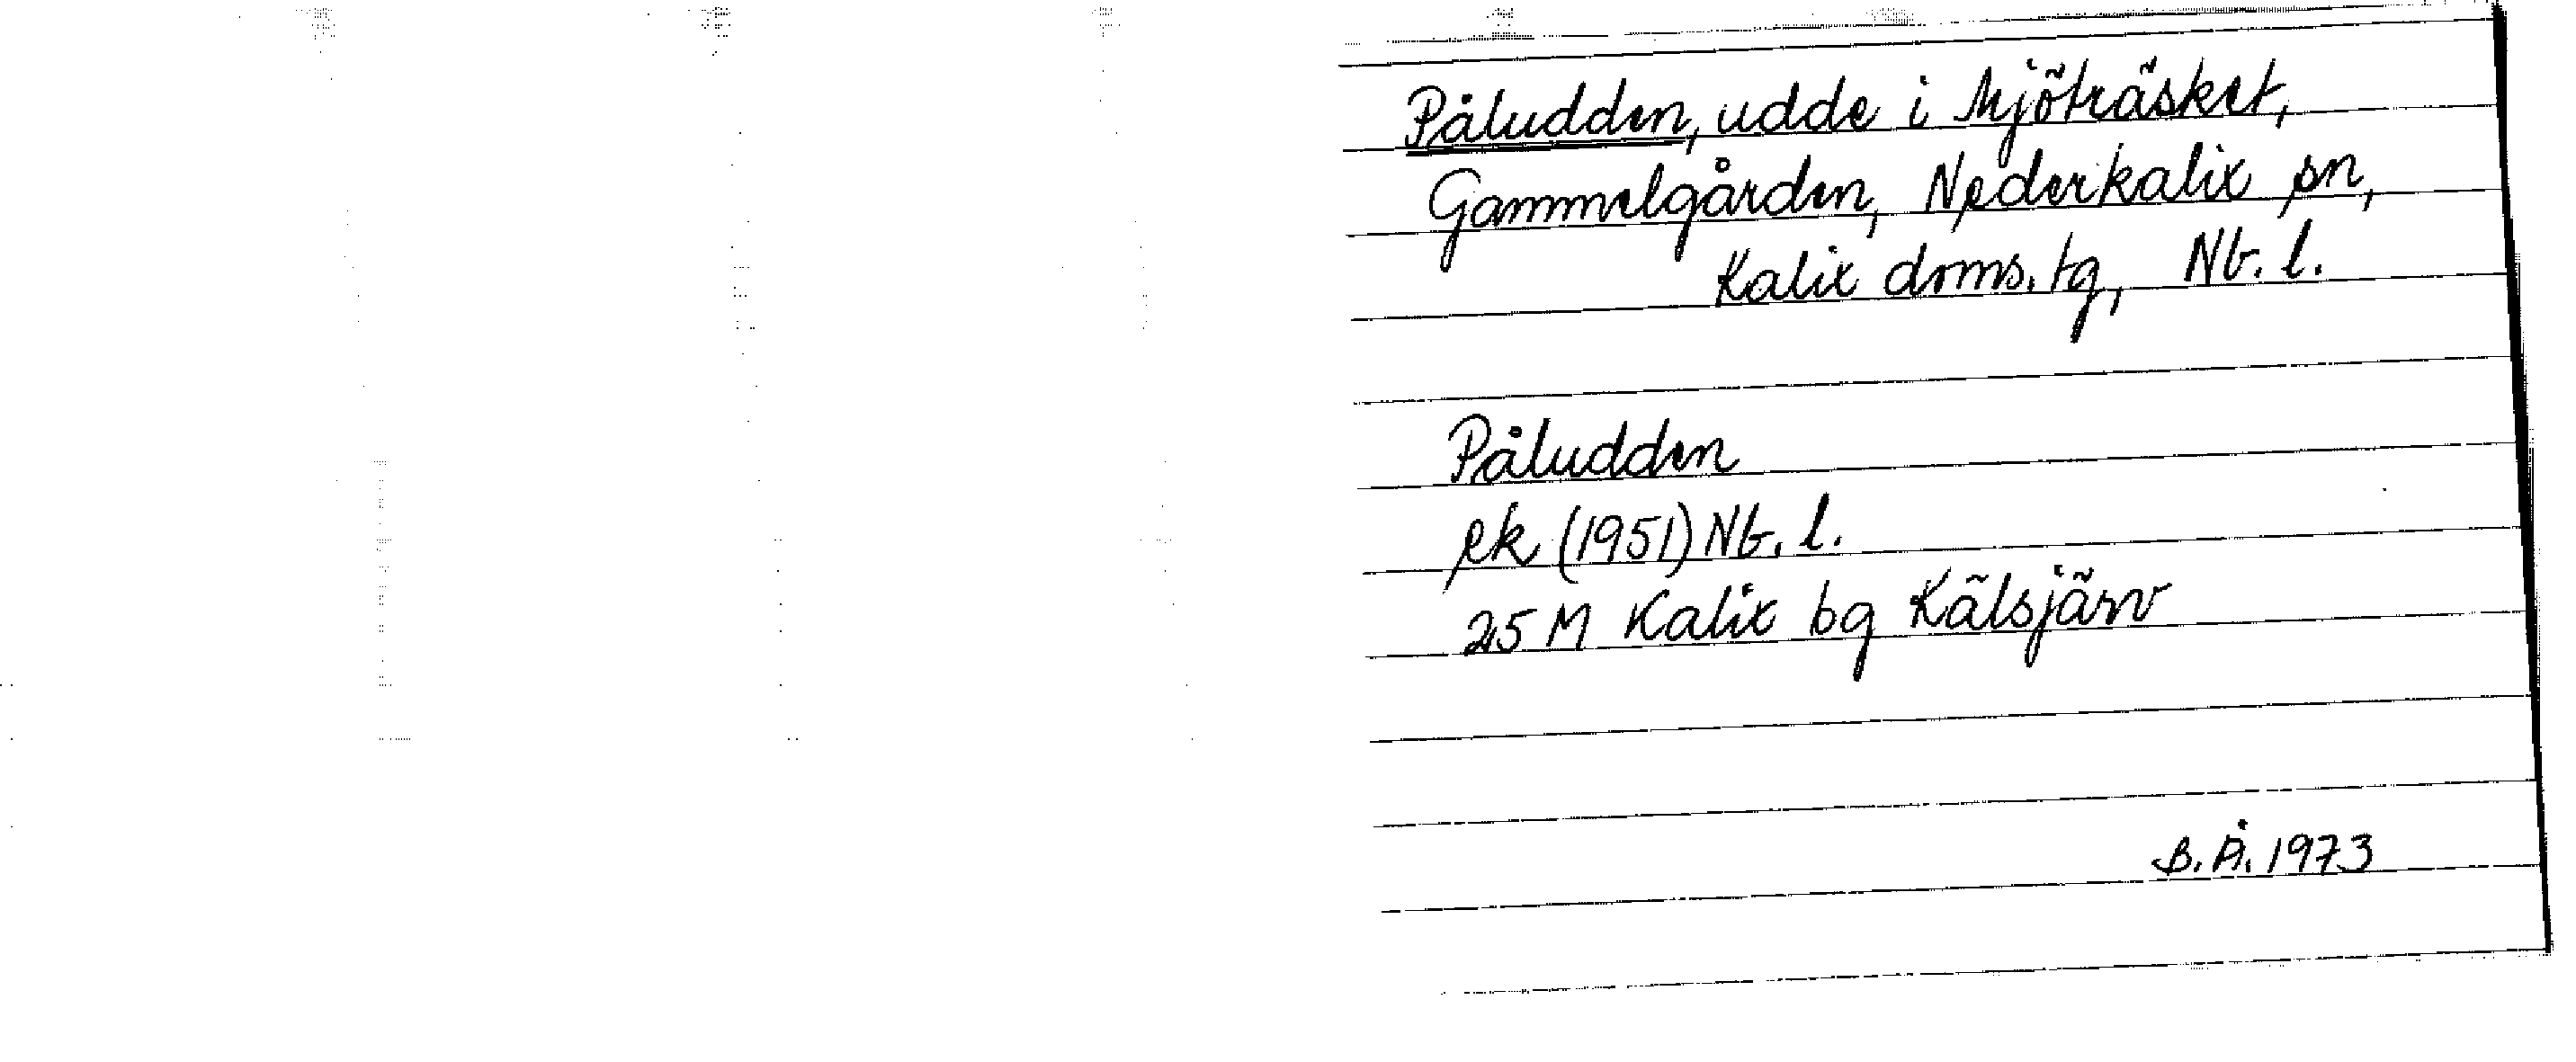 Påludden, udde i Mjöträsket,
Gammelgården, Nederkalix sn,
Kalix doms.tg, Nb. l.
Påludden
ek (1951) Nb. l.
25 M Kalix bg Kälsjärv
B. Å. 1973